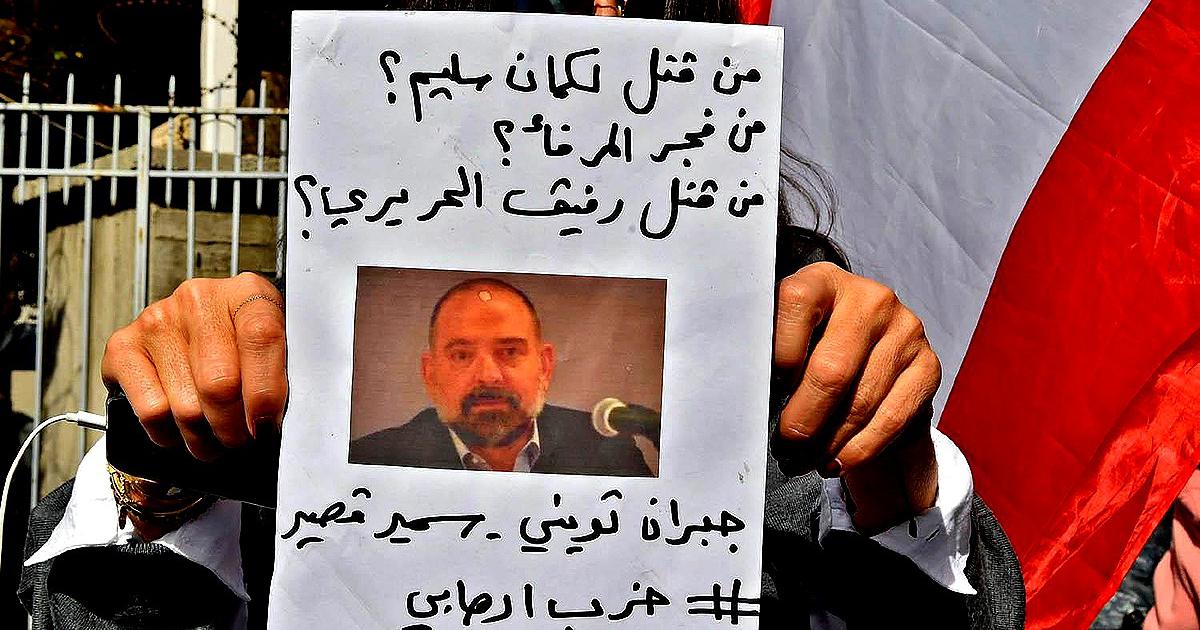 من قتل لقمان سليم؟
من فجر المرفأ؟
من قتل رفيق الحريري؟
جبران تويني - سمير قصير
# حزب ارهابي